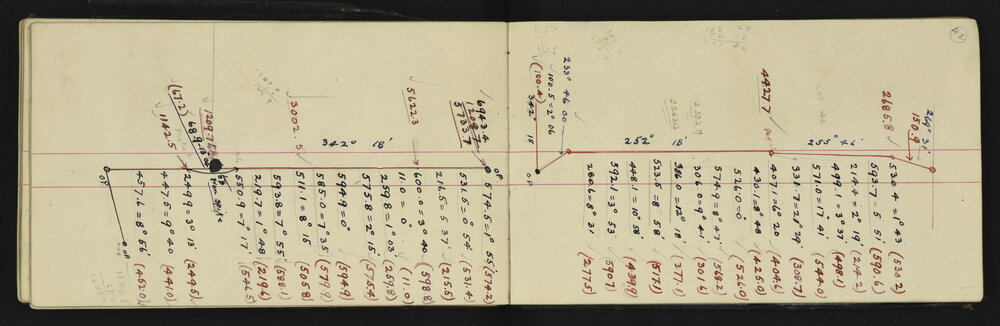 42
269° 31'
150.9
2685.8
530.4 = 1° 43' (530.2)
593.7 = 5° 51' (590.6)
214.4 = 2° 19' (214.2)
255° 46'
499.1 = 3° 37' (498.1)
571.0 = 17° 41' (544.0)
331.7 = 21° 29' (308.7)
4427.7
407.1 = 6° 20' (404.6)
430.1 = 8° 48' (425.0)
526.0 = 0° (526.0)
574.9 = 8° 47' (568.2)
306.0 = 9° 41' (301.6)
386.0 = 12° 18' (377.1)
252° 18'
448.1 = 10° 58' (439.9)
592.1 = 3° 53' (590.7)
280.6 = 8° 31' (277.5)
233° 46' 00"
100.5 = 2° 06'
(100.4)
342° 18'
OP
OP
574.5 = 1° 55' (574.2)
6943.4
1209.7
5733.7
531.5 = 0° 54' (531.4)
216.5 = 5° 37' (215.5)
5622.3
600.0 = 3° 40' (598.8)
111.0 = 0° (111.0)
299.8 = 1° 03' (299.8)
575.8 = 2° 15' (575.4)
342° 18'
594.9 = 0° (594.9)
585.0 = 7° 35' (579.9)
3002.5
511.1 = 8° 15' (505.8)
593.8 = 7° 55' (588.1)
219.7 = 1° 48' (219.6)
550.9 = 7° 17' (546.5)
1209.7
(67.2)
249.9 = 3° 13' (249.5)
1142.5
447.5 = 9° 40' (441.0)
457.6 = 8° 56' (452.0)
OP
OP